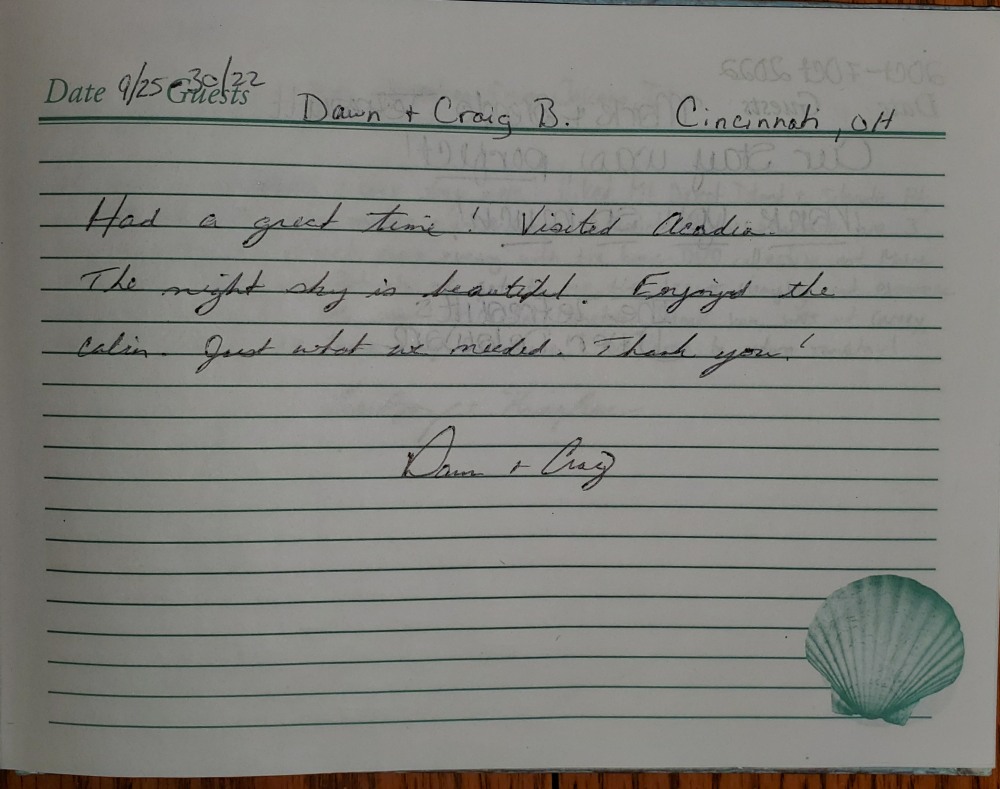 Date 9/25-30/22 Guests Dawn + Craig B. Cincinnati, OH
Had a great time! Visited Acadia.
The night sky is beautiful. Enjoyed the
calm. Just what we needed. Thank you!
Dawn + Craig